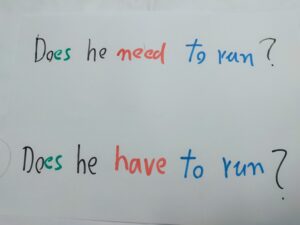 Does he need to run?
Does he have to run?